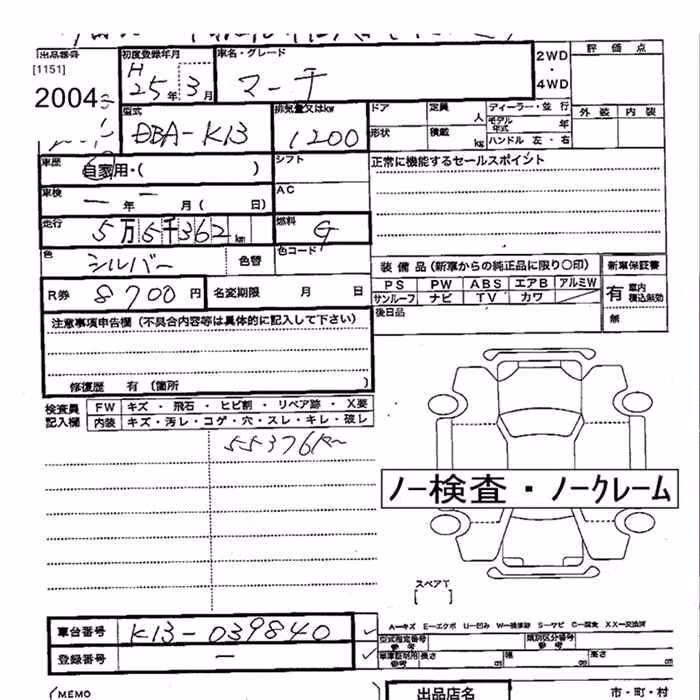 出品番号 初度登録年月 車名・グレード 2WD・4WD 評価点
[1151] H 25年3月 マーチ
2004 外装 内装
型式 DBA-K13 排気量又はkw 1200 ドア 定員 人 ディーラー・並行
形状 積載 kg モデル年式 年
ハンドル 左・右
車歴 自家用・( ) シフト 正常に機能するセールスポイント
車検 ー年ー月(日) AC
走行 5万5千362km 燃料 G
色 シルバー 色替 色コード 装備品(新車からの純正品に限り○印) 新車保証書
PS PW ABS エアB アルミW 有 車内積込無効
R券 8700円 名変期限 月 日 サンルーフ ナビ TV カワ
後日品 無
注意事項申告欄(不具合内容等は具体的に記入して下さい)
修復歴 有 (箇所 )
検査員記入欄 FW キズ・飛石・ヒビ割・リペア跡・X要
内装 キズ・汚レ・コゲ・穴・スレ・キレ・破レ
55376km
ノー検査・ノークレーム
スペアT
[ ]
A-キズ E-エクボ U-凹み W-補修跡 S-サビ C-腐食 XX-交換済
車台番号 K13-039840 型式指定番号 参考 類別区分番号 参考
登録番号 ー 車庫証明用参考 長さ cm 幅 cm 高さ cm
(MEMO 出品店名 市・町・村